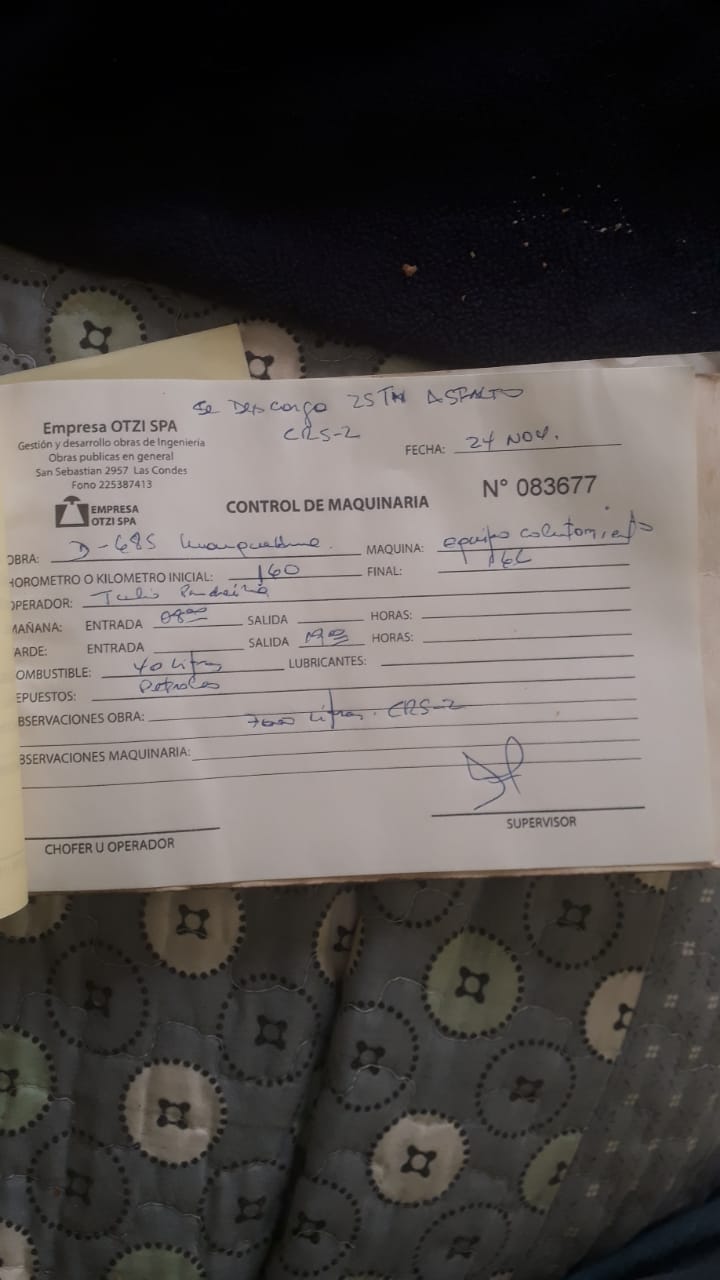 Se Descargo 25TN ASFALTO
CRS-2
Empresa OTZI SPA
Gestión y desarrollo obras de Ingenieria
Obras publicas en general
San Sebastian 2957 Las Condes
Fono 225387413
FECHA: 24 NOV.
N° 083677
EMPRESA
OTZI SPA
CONTROL DE MAQUINARIA
OBRA: D-685
MAQUINA: equipo
HOROMETRO O KILOMETRO INICIAL: 160
FINAL:
OPERADOR: Tulio
MAÑANA: ENTRADA 08 00 SALIDA HORAS:
ARDE: ENTRADA SALIDA HORAS:
OMBUSTIBLE: 40 Litros LUBRICANTES:
Petroleo
EPUESTOS:
BSERVACIONES OBRA: 7000 Litros. CRS-2
BSERVACIONES MAQUINARIA:
CHOFER U OPERADOR
SUPERVISOR